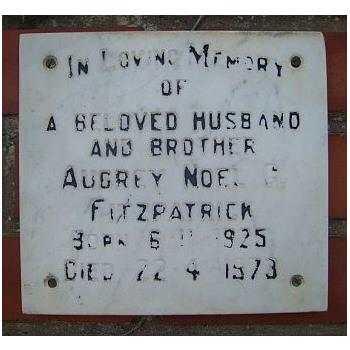 In Loving Memory
OF
A BELOVED HUSBAND
AND BROTHER
AUBREY NOEL G.
FITZPATRICK
BORN 6 11 1925
DIED 22 4 1973